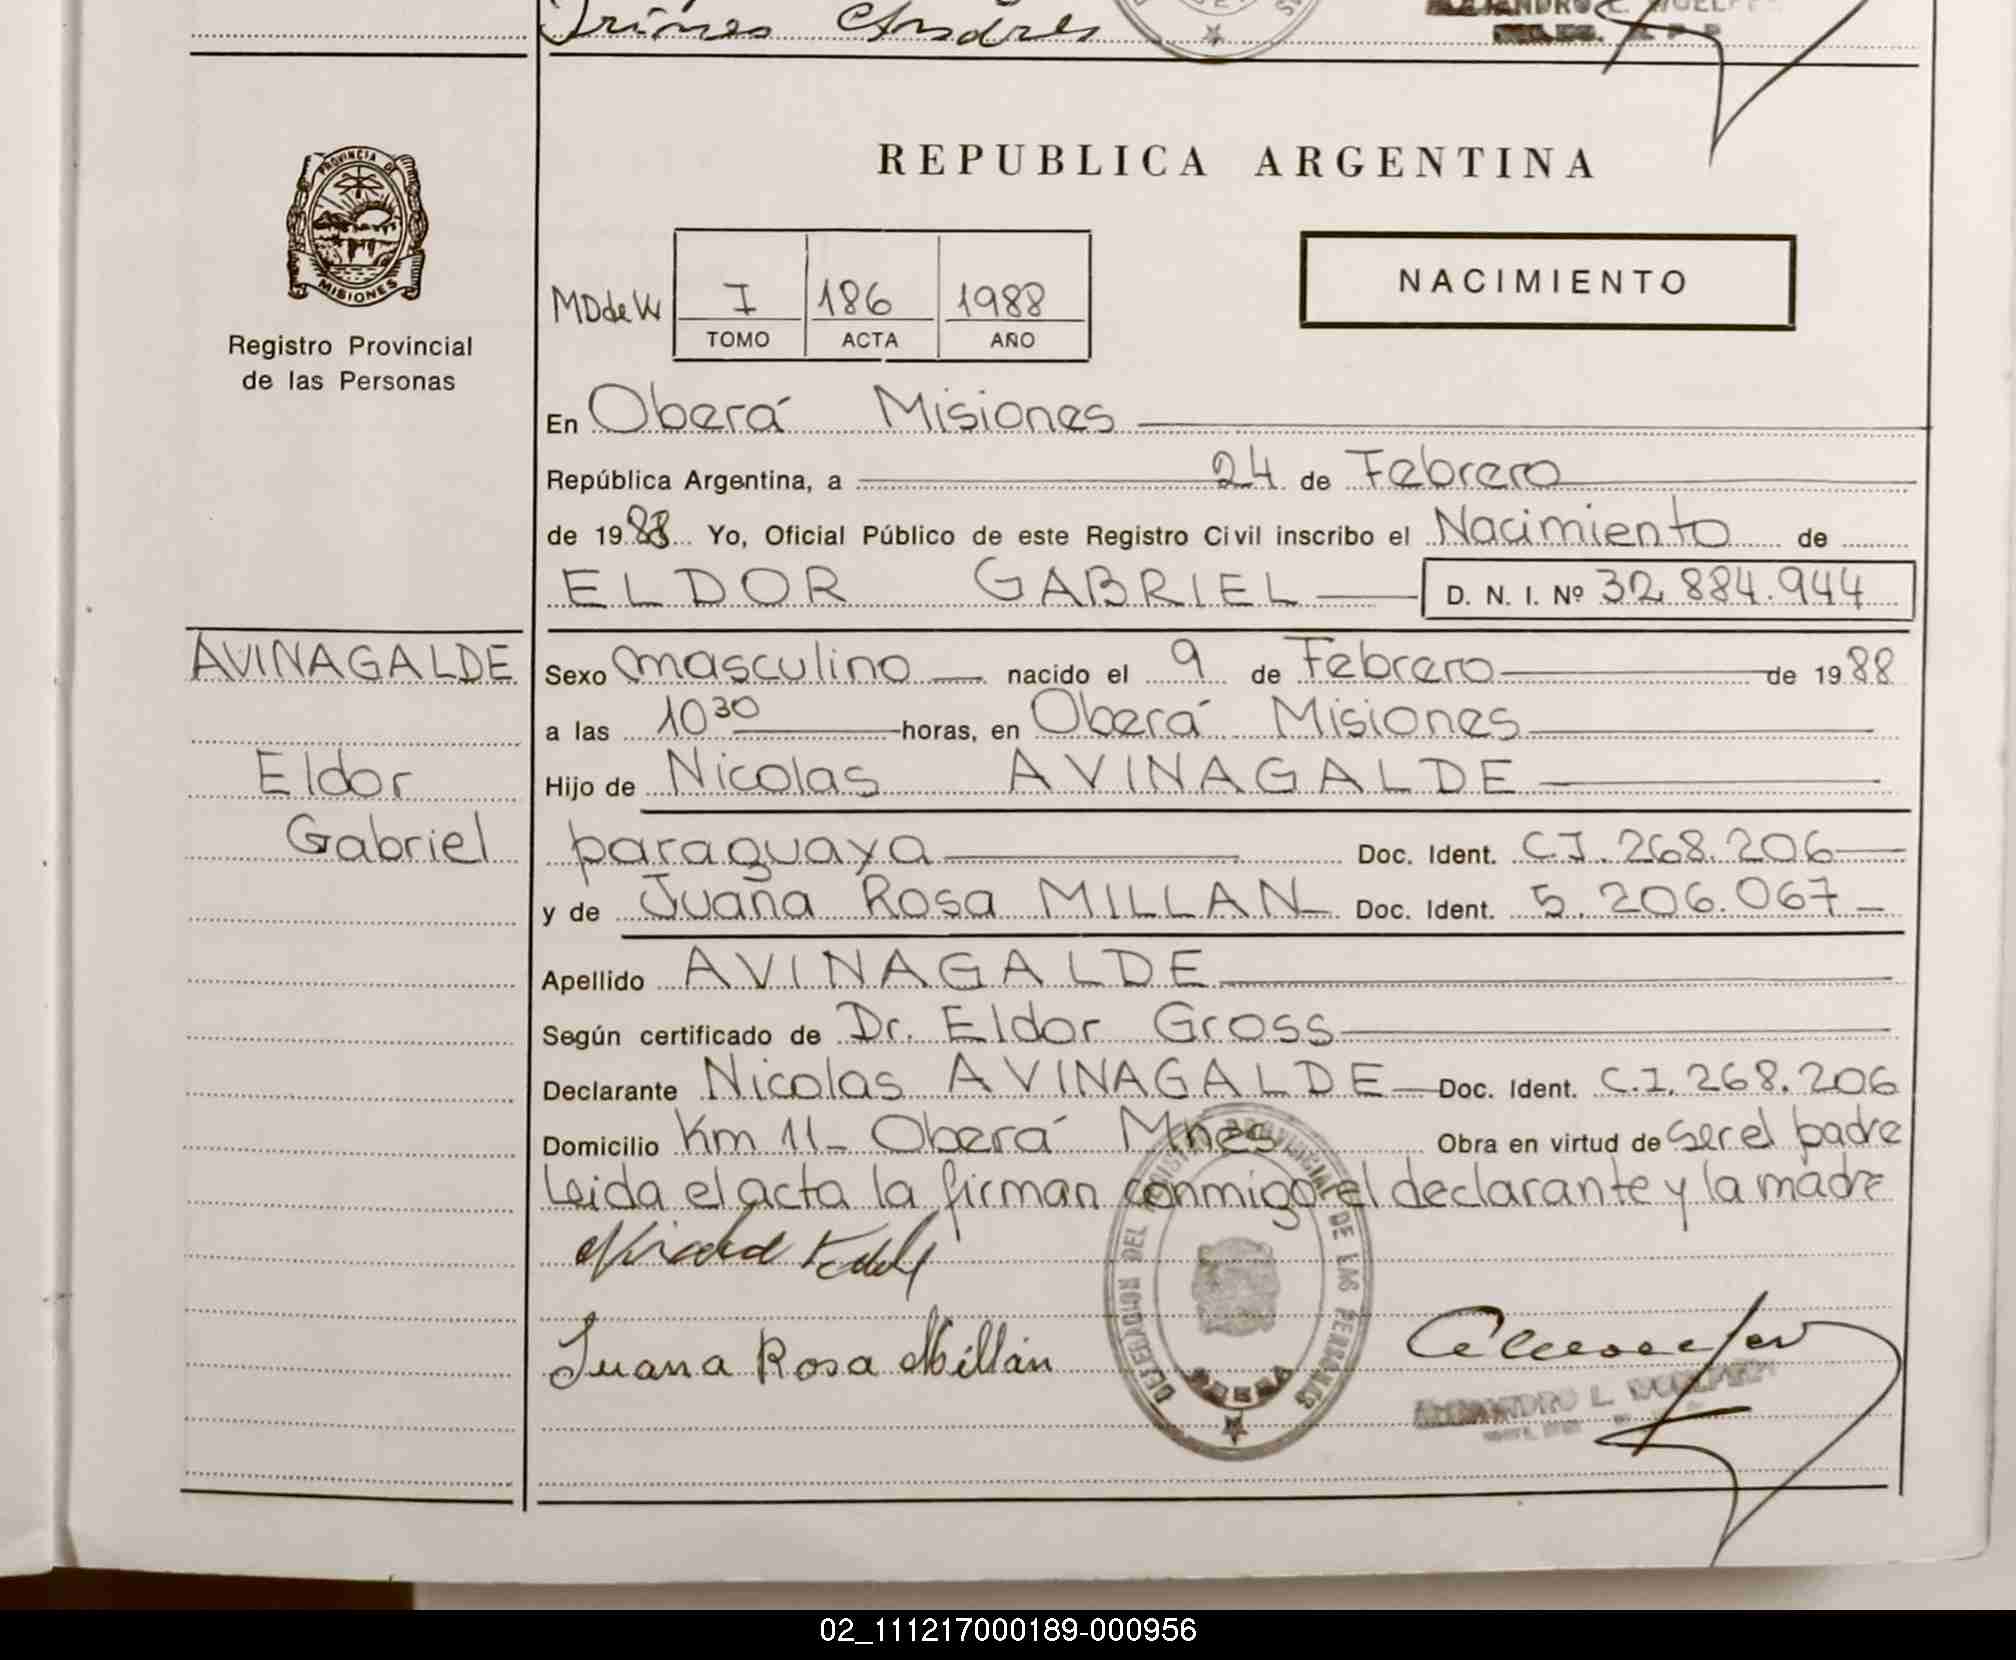 Trines Andres
ALEJANDRO L. WOELFERT
REPUBLICA ARGENTINA
PROVINCIA DE
MISIONES
Registro Provincial
de las Personas
MDdeW
I 186 1988
TOMO ACTA AÑO
NACIMIENTO
En Oberá Misiones
República Argentina, a 24 de Febrero
de 1988 Yo, Oficial Público de este Registro Civil inscribo el Nacimiento de
ELDOR GABRIEL D. N. I. Nº 32.884.944
AVINAGALDE
Eldor
Gabriel
Sexo masculino nacido el 9 de Febrero de 1988
a las 10 30 horas, en Oberá Misiones
Hijo de Nicolas AVINAGALDE
paraguaya Doc. Ident. C.I. 268.206
y de Juana Rosa MILLAN Doc. Ident. 5.206.067
Apellido AVINAGALDE
Según certificado de Dr. Eldor Gross
Declarante Nicolas AVINAGALDE Doc. Ident. C.I. 268.206
Domicilio Km 11 - Oberá Mnes Obra en virtud de ser el padre
Leida el acta la firman conmigo el declarante y la madre
Juana Rosa Millán
DELEGACION DEL REGISTRO PROVINCIAL DE LAS PERSONAS
OBERA
ALEJANDRO L. WOELFERT
02_111217000189-000956